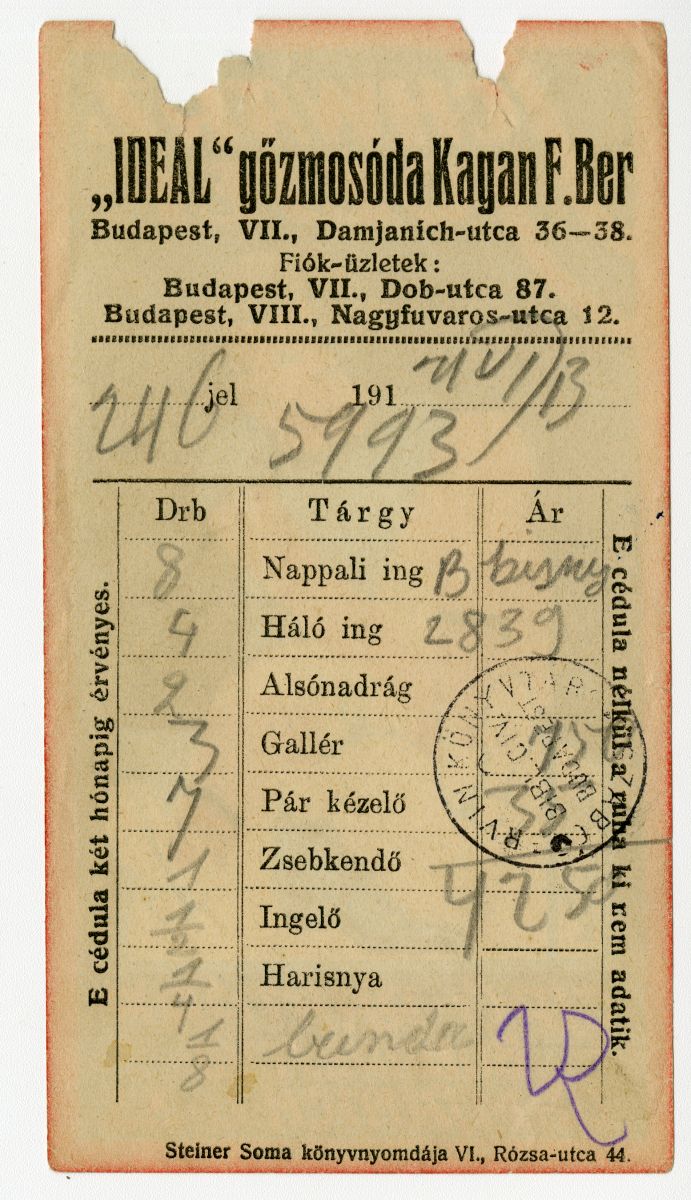 „IDEAL“ gőzmosóda Kagan F. Ber
Budapest, VII., Damjanich-utca 36—38.
Fiók-üzletek:
Budapest, VII., Dob-utca 87.
Budapest, VIII., Nagyfuvaros-utca 12.
246 jel 191
5993
E cédula két hónapig érvényes.
Drb Tárgy Ár
8 Nappali ing B
4 Háló ing 2839
2 Alsónadrág
3 Gallér
7 Pár kézelő
1 Zsebkendő
1/2 Ingelő
1/4 Harisnya
1/8 bunda
E cédula nélkül a ruha ki nem adatik.
BUDAPEST
Steiner Soma könyvnyomdája VI., Rózsa-utca 44.